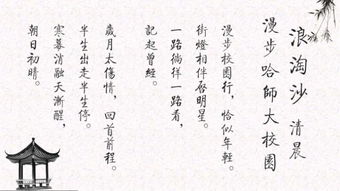 浪淘沙 清晨
漫步哈師大校園
漫步校園行，恰似年輕。
街燈相伴啟明星。
一路徜徉一路看，
記起曾經。
歲月太傷情，回首前程。
半生出走半生停。
寒暮消融天漸醒，
朝日初晴。